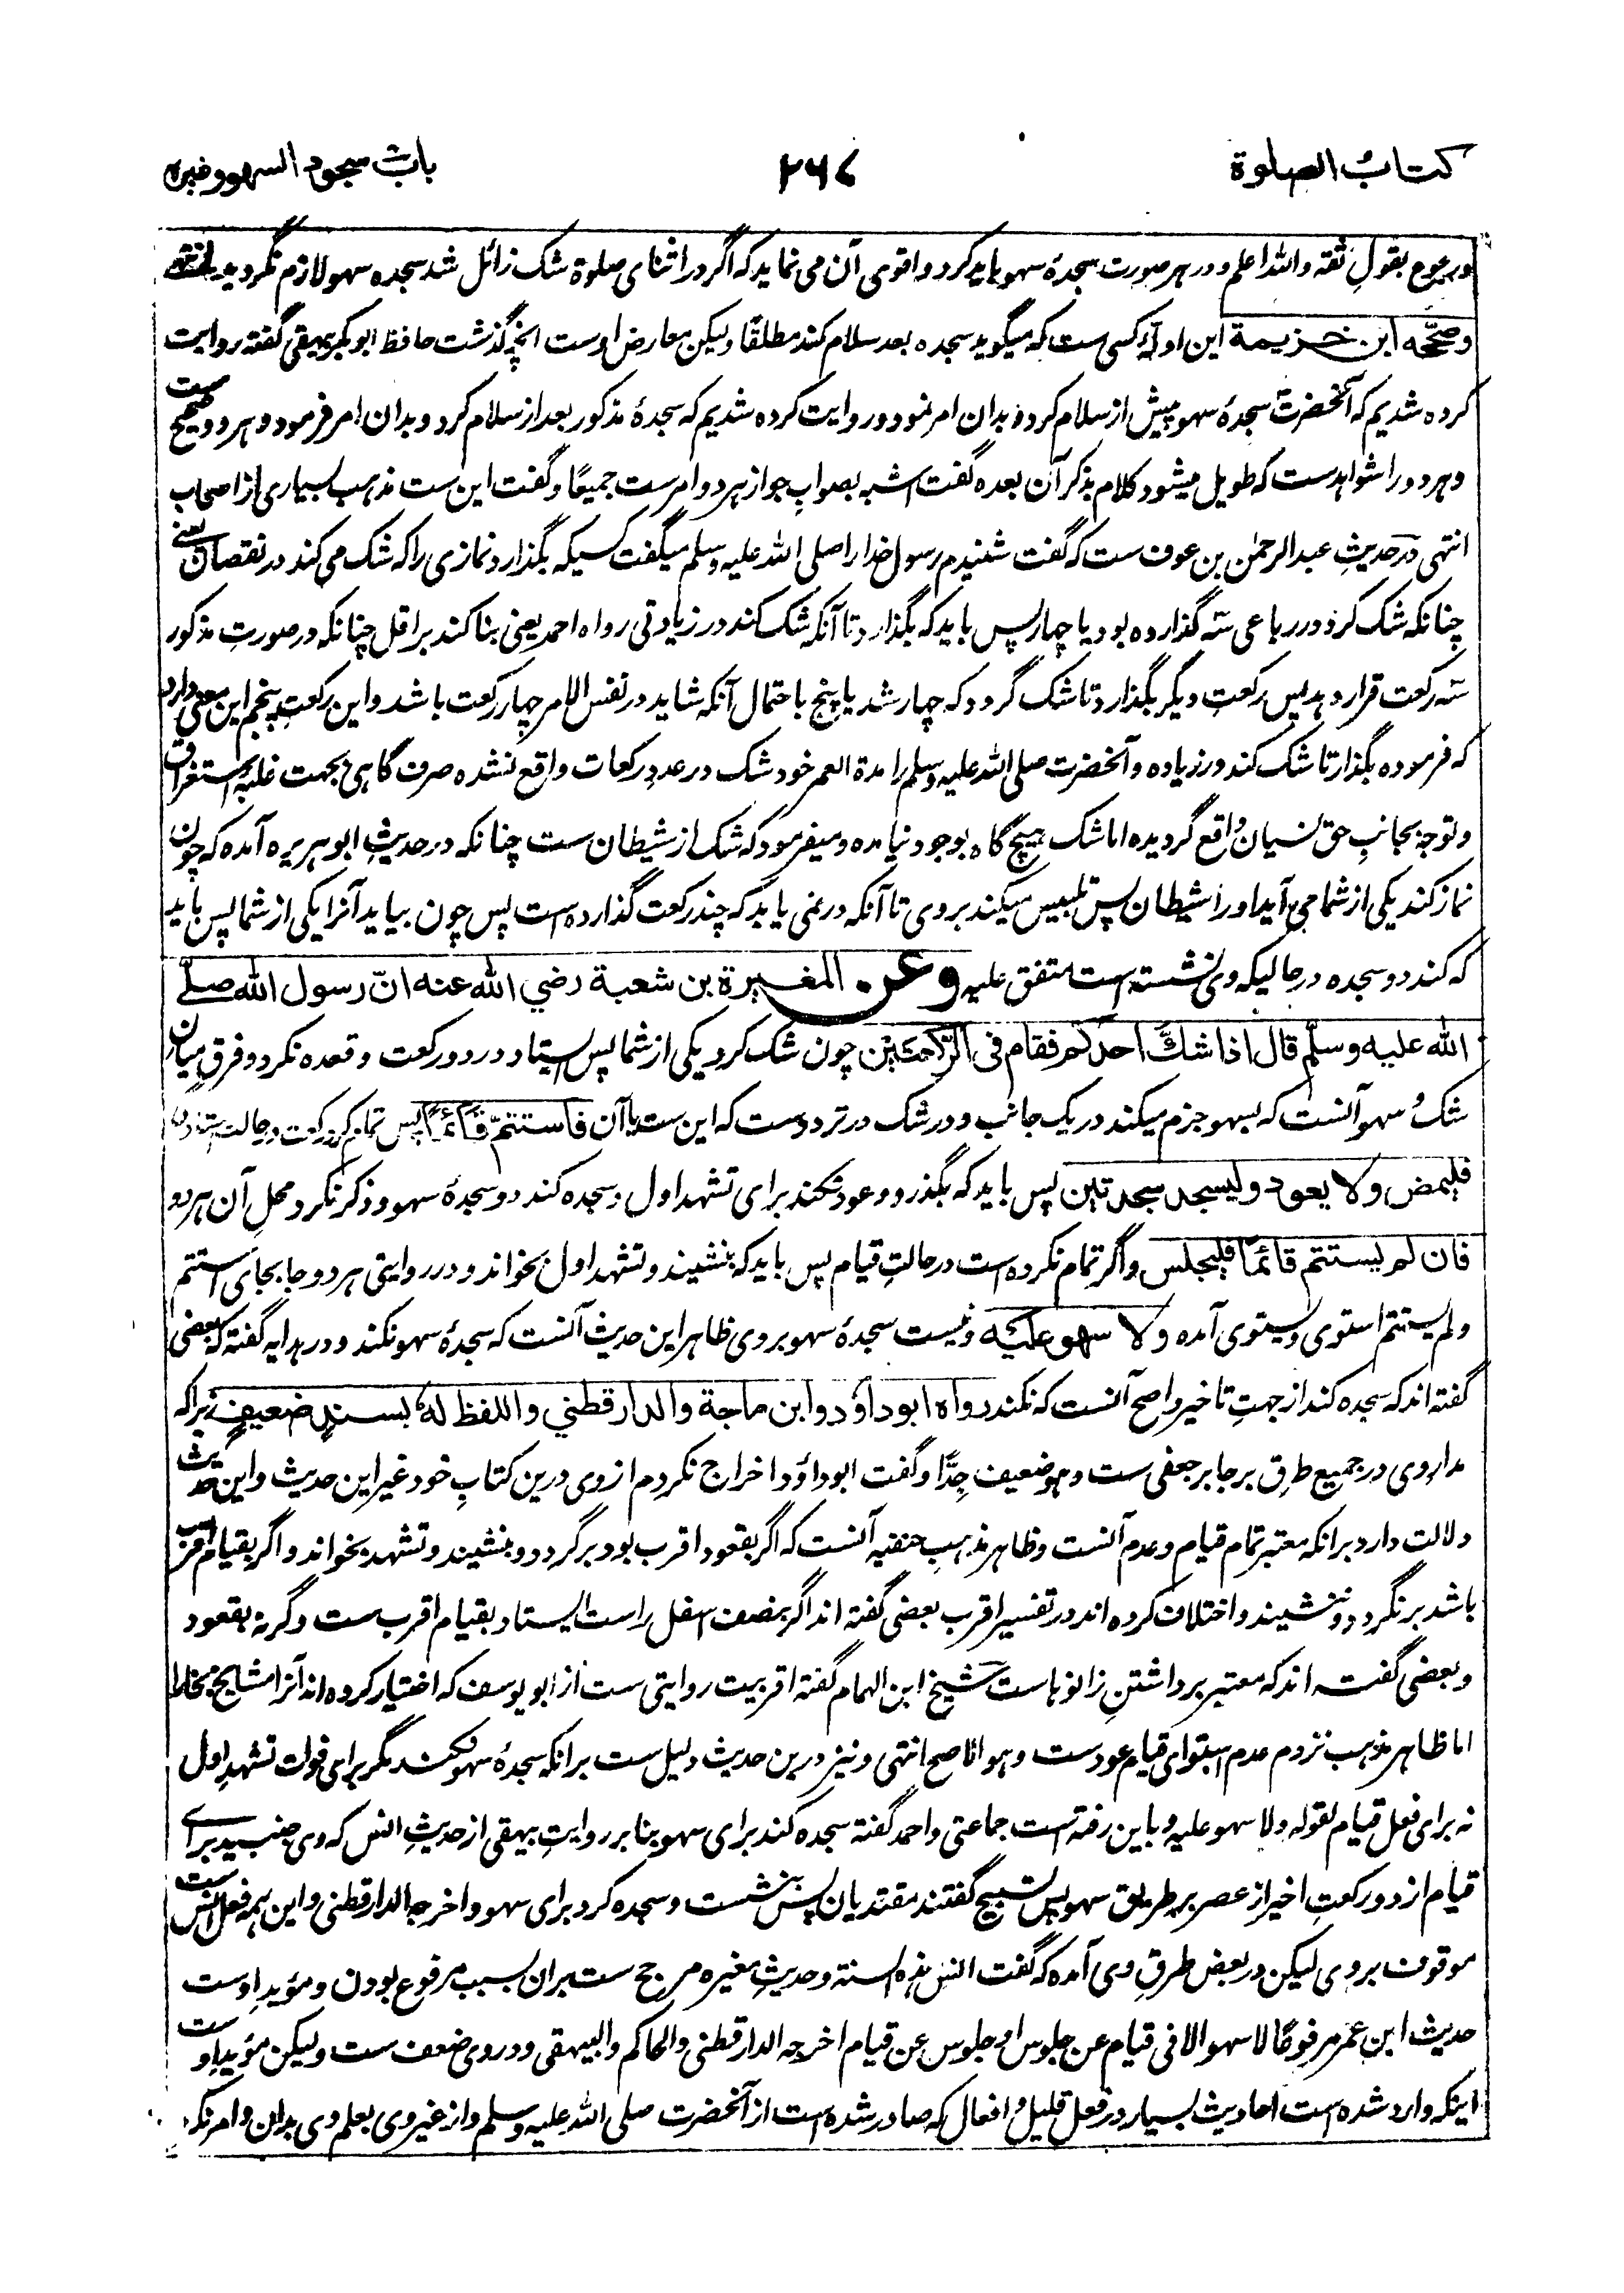 كتاب الصلوة ۲۶۷ باب سجود السهو وغيره
ورجوع بقولِ ثقه والله اعلم ودر هر صورت سجدۀ سهو باید کرد واقوی آن می نماید که اگر در اثنای صلوة شک زائل شد سجده سهو لازم نگردد
وصححه ابن خزيمة این ادلۀ کسی ست که میگوید سجده بعد سلام کند مطلقًا ولیکن معارض اوست انچه گذشت حافظ ابوبکر بیهقی گفته روایت
کرده شدیم که آنحضرت سجدۀ سهو پیش از سلام کرد و بدان امر نمود و روایت کرده شدیم که سجدۀ مذکور بعد از سلام کرد و بدان امر فرمود و هر دو صحیح ست
و هر دو را شواهد ست که طویل میشود کلام بذکر آن بعده گفت اشبه بصوابِ جواز هر دو امرست جمیعًا وگفت این ست مذهب بسیاری از اصحاب
انتهی در حدیثِ عبدالرحمٰن بن عوف ست که گفت شنیدم رسول خدا را صلی الله علیه وسلم میگفت کسیکه بگذارد نمازی را که شک می کند در نقصان یعنے
چنانکه شک کرد در رباعی سه گذارده بود یا چهار پس باید که بگذارد تا آنکه شک کند در زیادتی رواه احمد یعنی بنا کند بر اقل چنانکه در صورتِ مذکور
سه رکعت قرار دهد پس رکعتِ دیگر بگذارد تا شک گردد که چهار شد یا پنج با حتمال آنکه شاید در نفس الامر چهار رکعت باشد و این رکعتِ پنجم این معنی دارد
که فرموده بگذار تا شک کند در زیاده و آنحضرت صلی الله علیه وسلم را مدة العمر خود شک در عددِ رکعات واقع نشده صرف گاهی بجهت غلبۀ استغراق
و توجه بجانبِ حق نسیان واقع گردیده اما شک هیچ گاه بوجود نیامده و میفرمود که شک از شیطان ست چنانکه در حدیثِ ابوهریره آمده که چون
نماز کند یکی از شما می آید او را شیطان پس تلبیس میکند بروی تا آنکه در نمی یابد که چند رکعت گذارده است پس چون بیابد آنرا یکی از شما پس باید
که کند دو سجده در حالیکه وی نشسته است متفق علیه وعن المغيرة بن شعبة رضي الله عنه انّ رسول الله صلے
الله عليه وسلّم قال اذا شكّ احدكم فقام فى الركعتين چون شک کرد یکی از شما پس ایستاد در دو رکعت و قعده نکرد و فرق میان
شک و سهو آنست که بسهو جزم میکند در یک جانب و در شک در تردد ست که این ست یا آن فاستتمّ قائمًا پس تمام کرد رکعت در حالت
فليمض ولا يعود وليسجد سجدتين پس باید که بگذرد و عود نکند برای تشهد اول و سجده کند دو سجدۀ سهو و ذکر نکرد محلِ آن هر دو
فان لم يستتم قائمًا فليجلس و اگر تمام نکرده است در حالتِ قیام پس باید که بنشیند و تشهد اول بخواند و در روایتی هر دو جا بجای استتم
و لم یستتم استوی و یستوی آمده ولا سهو عليه و نیست سجدۀ سهو بروی ظاهر این حدیث آنست که سجدۀ سهو نکند و در هدایه گفته که بعضی
گفته اند که سجده کند از جهتِ تاخیر واصح آنست که نکند رواه ابو داؤد وابن ماجة والدارقطني واللفظ له بسندٍ ضعيفٍ زیرا که
مدار وی در جمیع طرق بر جابر جعفی ست و هو ضعیف جدًا و گفت ابوداؤد اخراج نکردم از وی درین کتابِ خود غیر این حدیث و این حدیث
دلالت دارد برانکه معتبر تمام قیام و عدم آنست و ظاهر مذهب حنفیه آنست که اگر بقعود اقرب بود برگردد و بنشیند و تشهد بخواند و اگر بقیام اقرب
باشد برنگردد و ننشیند و اختلاف کرده اند در تفسیر اقرب بعضی گفته اند اگر نصف اسفل راست ایستاد بقیام اقرب ست و گرنه بقعود
و بعضی گفته اند که معتبر برداشتنِ زانوهاست شیخ ابن الهمام گفته اقربیت روایتی ست از ابو یوسف که اختیار کرده اند آنرا مشایخ بخارا
اما ظاهر مذهب نزدم عدم استوای قیام عودست و هو الاصح انتهی و نیز درین حدیث دلیل ست برانکه سجدۀ سهو نکند مگر برای فوات تشهد اول
نه برای فعل قیام لقوله ولا سهو علیه و باین رفته است جماعتی و احمد گفته سجده کند برای سهو بنا بر روایتِ بیهقی از حدیثِ انس که وی جنبید برای
قیام از دو رکعتِ اخیر از عصر بر طریق سهو پس تسبیح گفتند مقتدیان پس بنشست و سجده کرد برای سهو و اخرجه الدارقطنی و این همه فعل انس ست
موقوف بروی لیکن در بعض طرقِ وی آمده که گفت انس هذه السنة و حدیثِ مغیره مرجح ست بران بسبب مرفوع بودن و مؤید اوست
حدیث ابن عمر مرفوعًا لا سهو الا فی قیام عن جلوس او جلوس عن قیام اخرجه الدارقطنی والحاکم والبیهقی و در وی ضعف ست ولیکن مؤید اوست
اینکه وارد شده است احادیث بسیار در فعل قلیل و افعال که صادر شده است از آنحضرت صلی الله علیه وسلم و از غیر وی بعلم وی بدان و امر نکرد